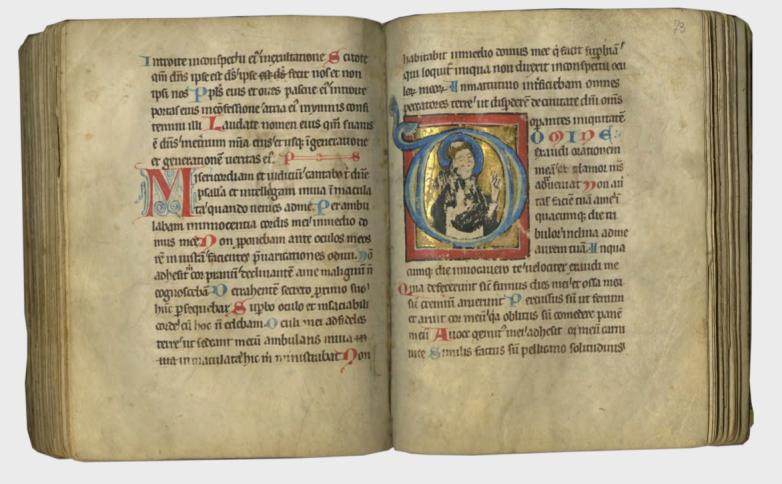 Introite in conspectu eius in exultatione Scitote
qm dns ipse est ds ipse fecit nos et non
ipsi nos Ppls eius et oues pascue ei introite
portas eius in confessione atria ei in ymnis confi
temini illi Laudate nomen eius qm suauis
e dns in eternum mia eius et usq in generatione
et generatione ueritas ei. P
Misericordiam et iudiciu cantabo t dne
psalla et intellegam in uia in macula
ta quando uenies ad me. Per ambu
labam in innocentia cordis mei in medio do
mus mee Non proponebam ante oculos meos
re in iusta facientes p uaricationes odiui. No
adhesit cor prauu declinante a me malignu n
cognosceba Detrahente secreto primo suo
huc persequebar Supbo oculo et insaciabili
corde cu hoc n edebam Oculi mei ad fideles
terre ut sedeant mecu ambulans in uia in
maculata hic m ministrabat Non
73
habitabit in medio domus mee q facit suphia
qui loquit iniqua non direxit in conspectu ocu
lor meor In matutino int ficiebam omnes
peccatores terre ut disperde de ciuitate dni oms
operantes iniquitate
DOMINE
exaudi orationem
mea et clamor ms
ad te ueniat Non au
tas facie tua a me i
quacumq die tri
bulor inclina ad me
aurem tua In qua
cumq die inuocauero te uelociter exaudi me
Quia defecerunt sic fumus dies mei et ossa mei
sic cremiu aruerunt Percussus su ut fenum
et aruit cor meu qa oblitus su comedere pane
meu A uoce gemit mei adhesit os meu carni
mee Similis factus su pellicano solitudinis